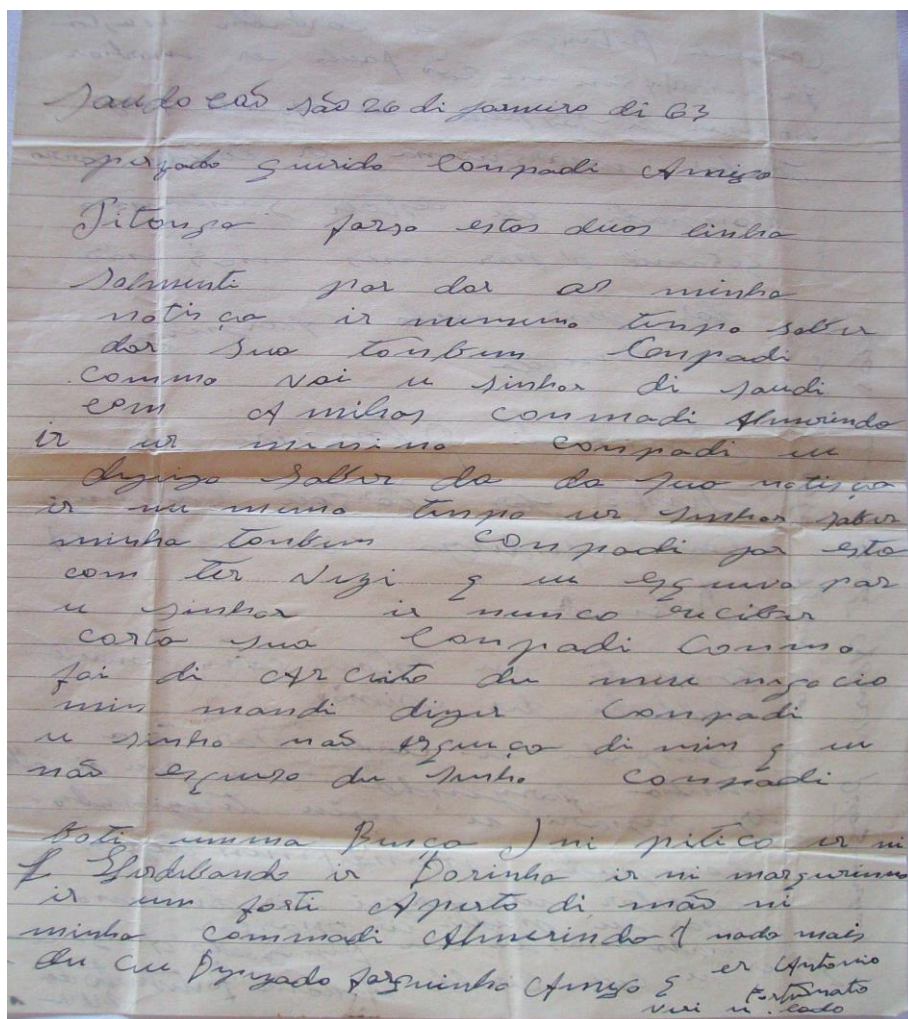 Saudo cão são 26 di janneiro di 63
prezado querido Conpadi Amigo
Pitonga farso estas duas linha
Salmenti par dar as minha
notisça ir mememo tenpo saber
dar sua tanbem Conpadi
commo vai u sinhor di saudi
com A milhas conmadi Almerinda
ir ur minino conpadi eu
dezejo saber da da sua notisça
ir nu memo tenpo ur sinhor saber
minha tanbem conpadi jar esta
com ter Vezi q eu esquevo par
u sinhor ir nunca recibir
carta sua Conpadi Commo
foi di Arceito du meu negocio
min mandi dizer Conpadi
u sinho não esqueça di min q eu
não esqueso du sinho conpadi
boti umma Bença ni pitico ir ni
ir Dorinha ir ni
ir um forti Aperto di mão ni
minha commadi Almerinda nada mais
du seu Dezejado Amigo q er Antonio
Fortunato